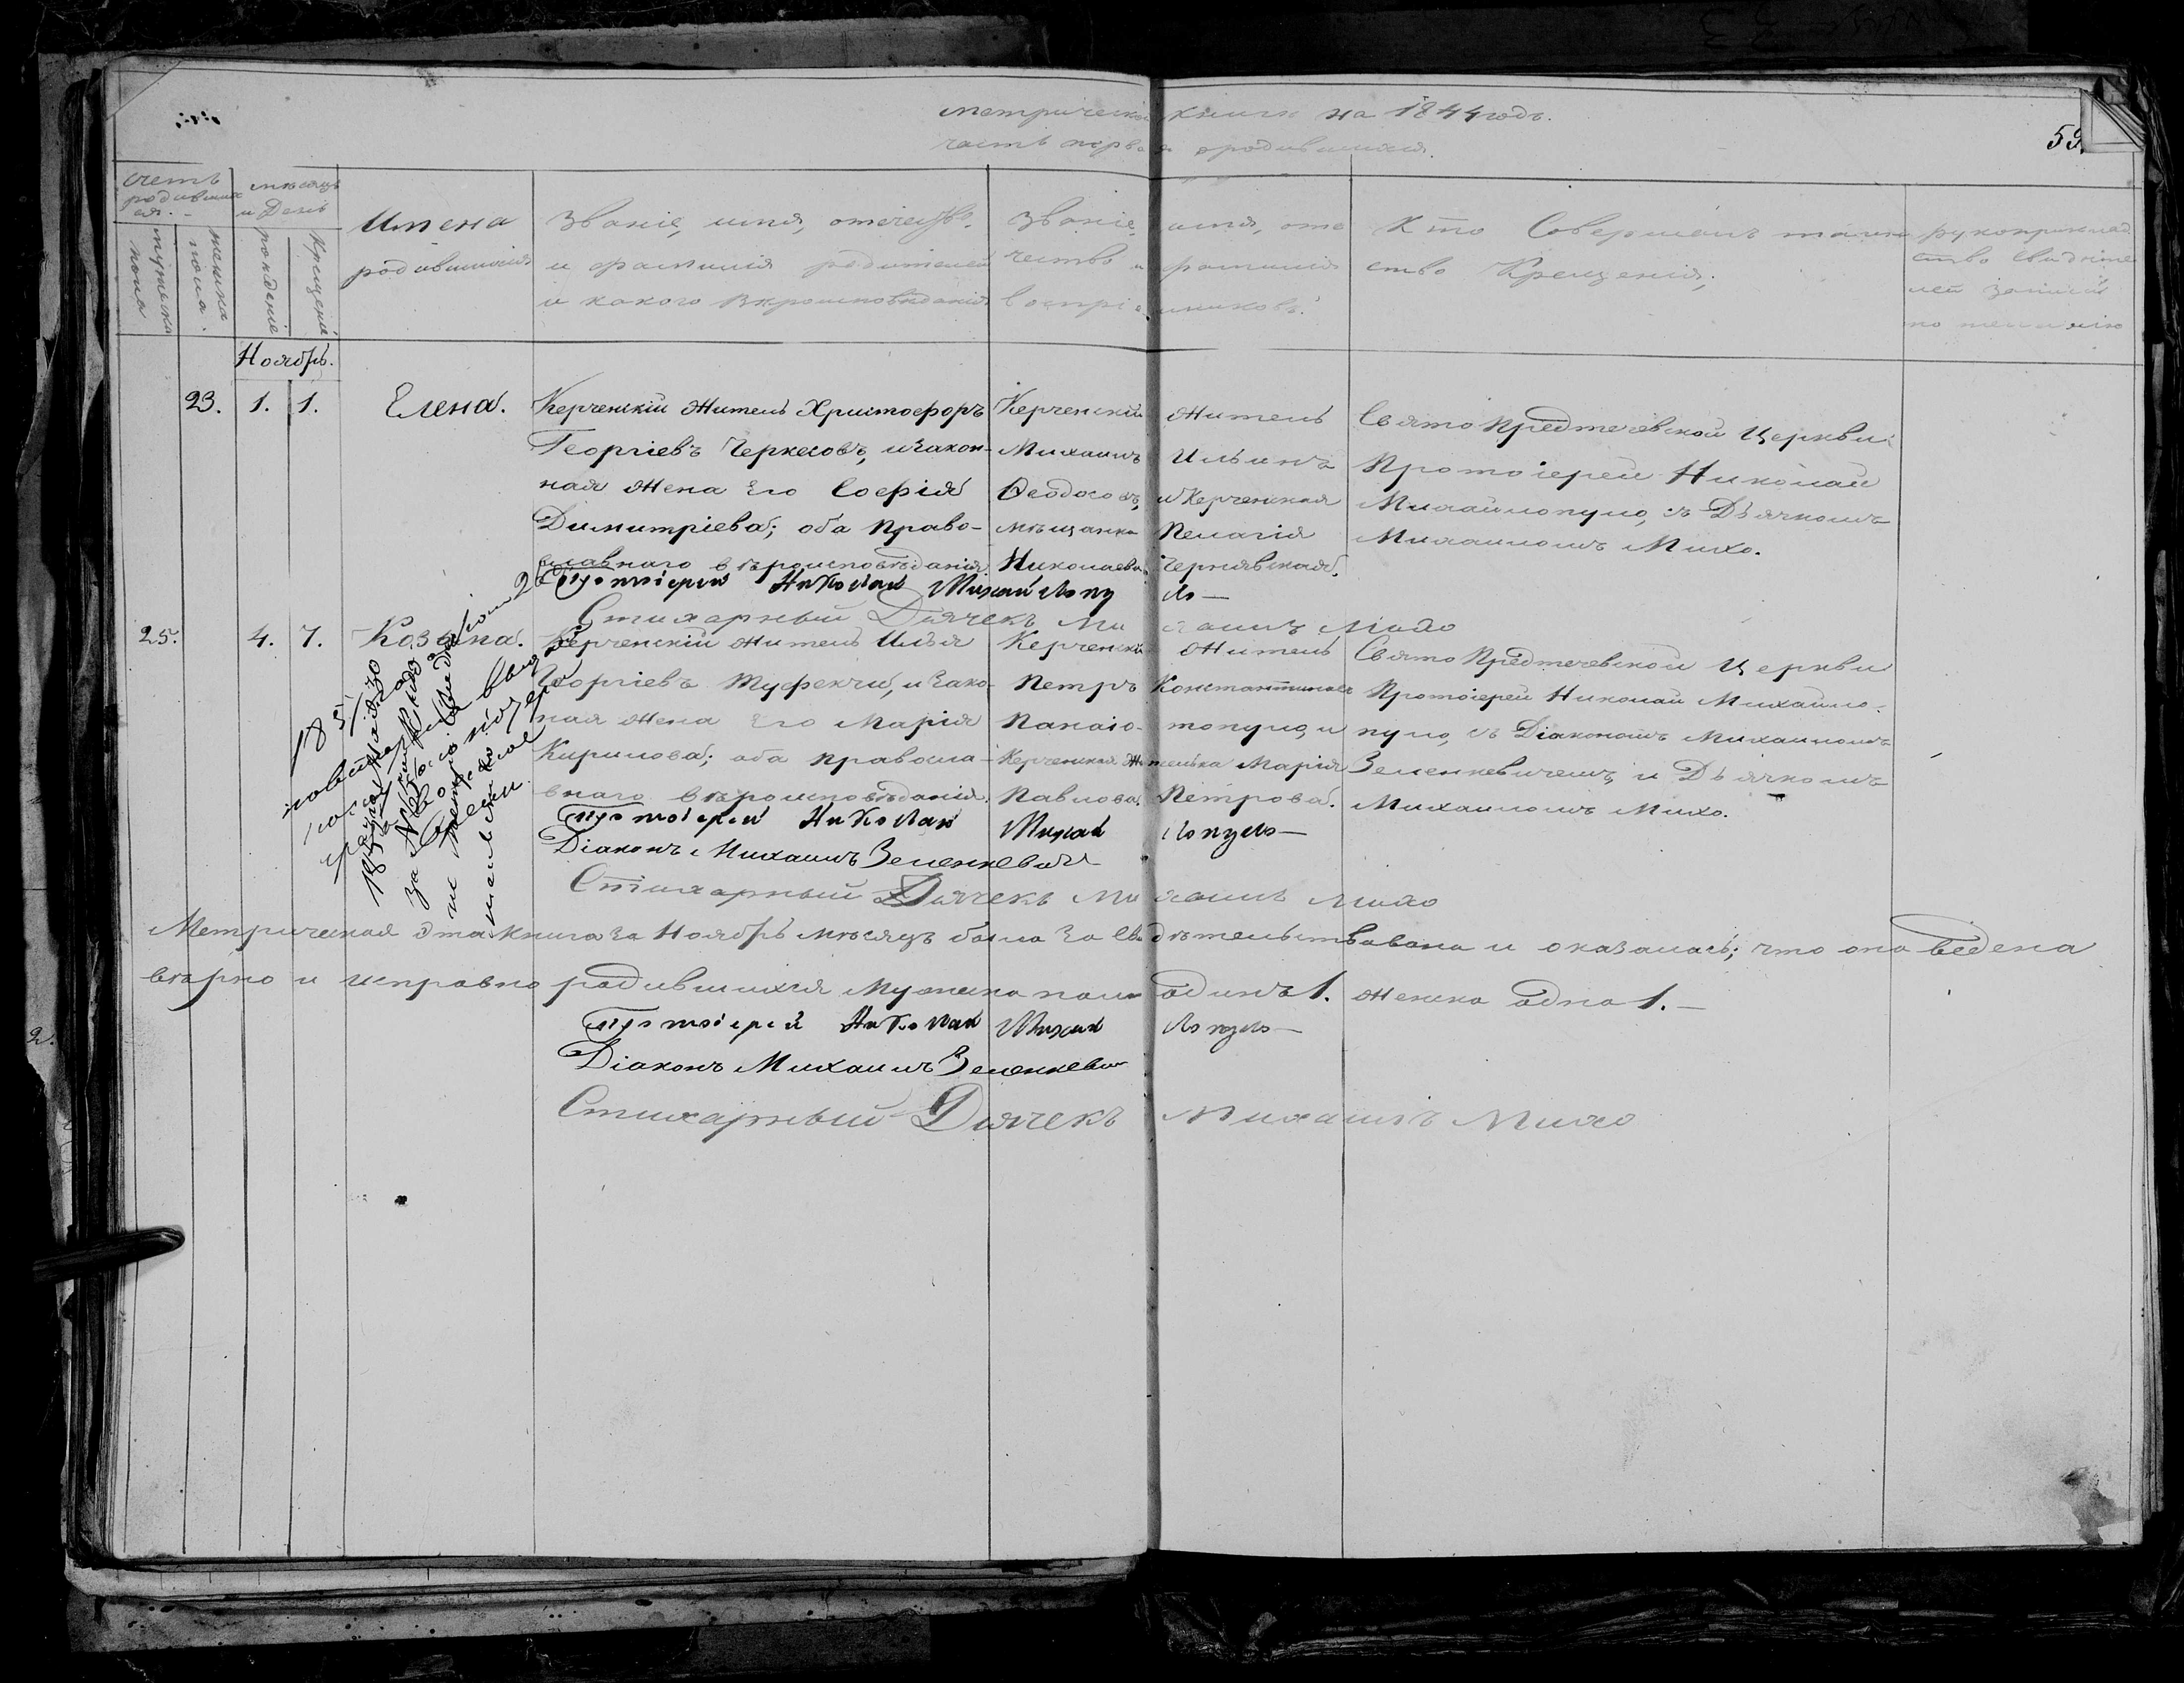 Метрической книги на 1844 годъ.
часть первая о родившихся.
59.
счетъ родившихся.
мужеска пола
женска пола.
мѣсяцъ и День
рожденіе
крещеніе
Имена
родившихся
Званіе, имя, отечество.
и фамилія родителей
и какого вѣроисповѣданія
Званіе, имя, оте
чество и фамилія
воспріемниковъ.
Кто Совершалъ таин
ство Крещенія;
рукоприклад
ство свидѣте
лей записи
по желанію
Ноябрь.
23. 1. 1. Елена.
Керченскій Житель Христофоръ
Георгіевъ Черкесовъ, и закон-
ная Жена Его Софія
Димитріева; оба Право-
славнаго вѣроисповѣданія
Керченскій Житель
Михаилъ Ильинъ
Ѳеодосовъ, и Керченская
мѣщанка Пелагія
Николаева Чернявская.
Свято Предтечевской Церкви
Протоіерей Николай
Михайлопуло, съ Дьячкомъ
Михаиломъ Михо.
Протоіерей Николай Михайлопуло—
Стихарный Дьячекъ Михаилъ Михо
25. 4. 7. Козьма.
Керченскій житель Илья
Георгіевъ Туфекчи, и Зако-
ная Жена Его Марія
Кирилова; оба правосла-
внаго вѣроисповѣданія.
Керченскій Житель
Петръ Константиновъ
Панаіо-топуло, и
Керченская Жителька Марія
Павлова Петрова.
Свято Предтечевской Церкви
Протоіерей Николай Михайло-
пуло, съ Діакономъ Михаиломъ
Зеленкевичемъ, и Дьячкомъ
Михаиломъ Михо.
Протоіерей Николай Михайлопуло—
Діаконъ Михаилъ Зеленкевичъ
Стихарный Дьячекъ Михаилъ Михо
Метрическая эта Книга за Ноябрь мѣсяцъ была Засвидѣтельствована и оказалась; что она ведена
вѣрно и исправно родившихся Мужеска пола одинъ 1. женска одна 1.—
Протоіерей Николай Михайлопуло—
Діаконъ Михаилъ Зеленкевичъ
Стихарный Дьячекъ Михаилъ Михо